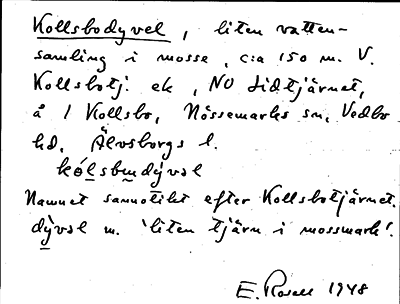 Kollsbodyvel, liten vatten-
samling i mosse, c:a 150 m. V.
Kollsbotj. ek, NO Lidtjärnet,
å 1 Kollsbo, Nössemarks sn, Vedbo
hd, Älvsborgs l.
kólsbmdývəl
Namnet sannolikt efter Kollsbotjärnet.
dývəl m. 'liten tjärn i mossmark'.
E. Rosell 1948